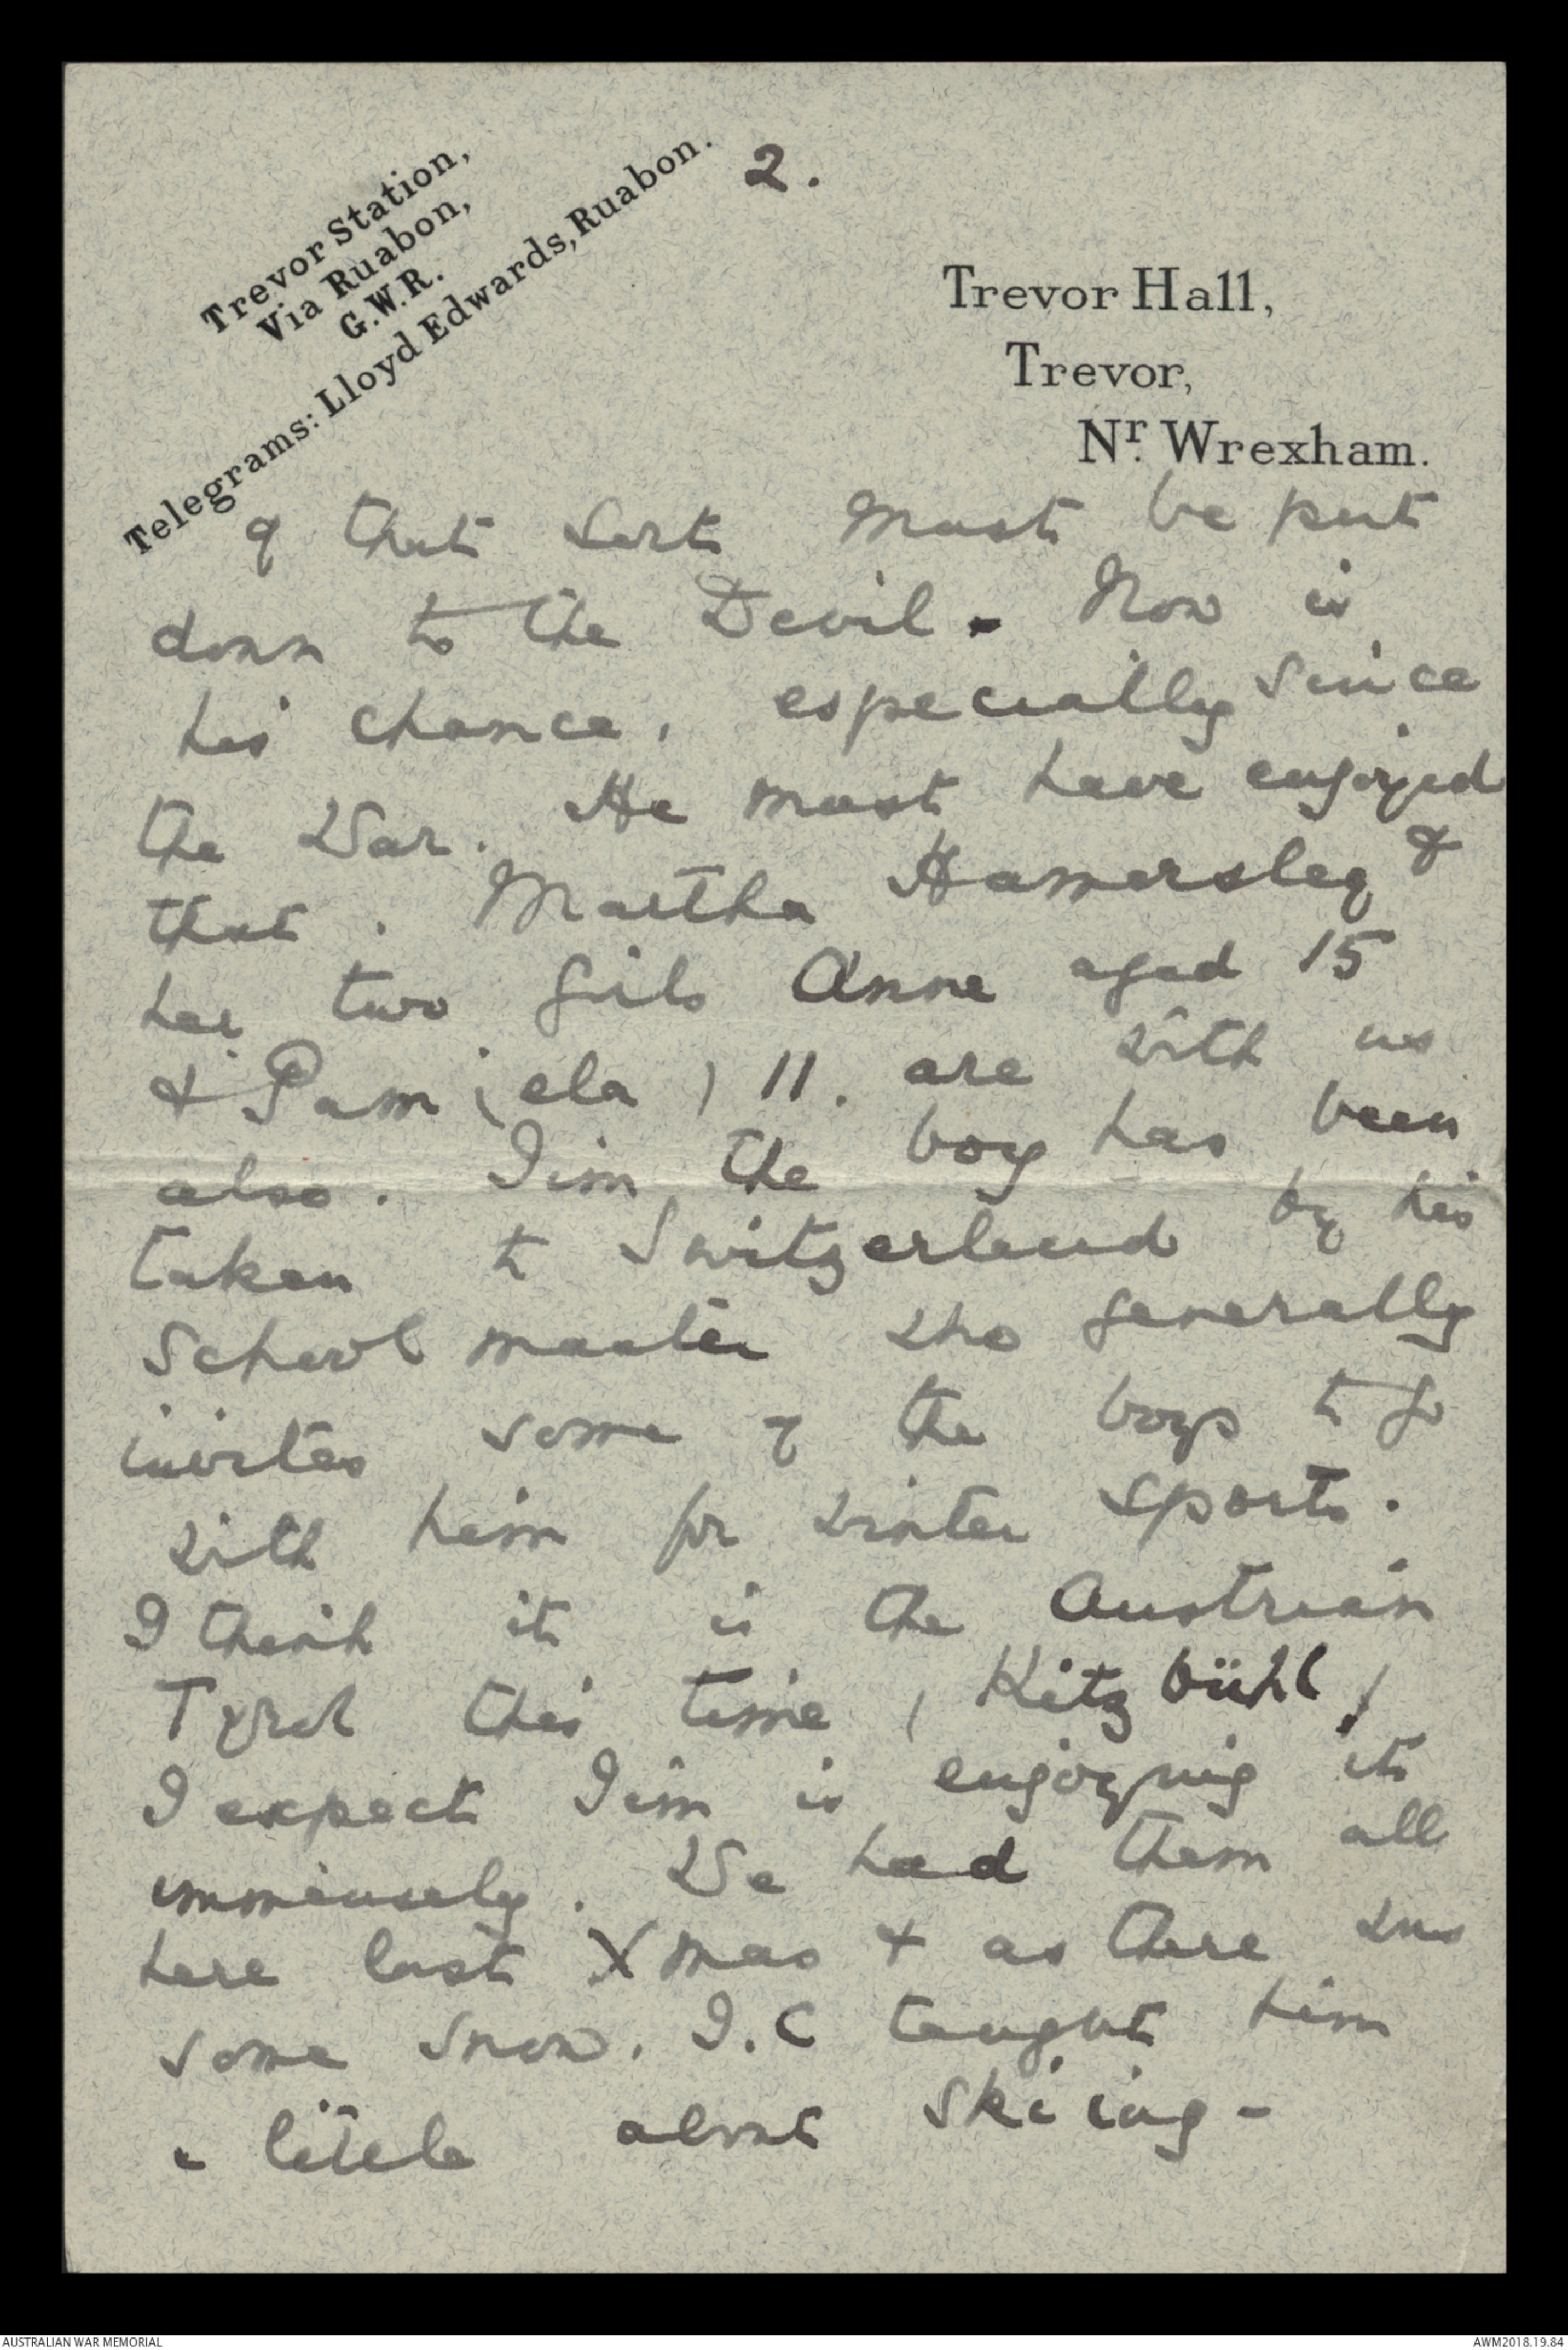 Trevor Station,
Via Ruabon,
G.W.R.
Telegrams: Lloyd Edwards, Ruabon.
2.
Trevor Hall,
Trevor,
Nr. Wrexham.
of that sort must be put
down to the Devil - Now is
his chance, especially since
the War. He must have enjoyed
that. Martha Hamersley &
her two girls Anne aged 15
& Pam (ela) 11. are with us
also. Jim, the boy has been
taken to Switzerland by his
School master who generally
invites some of the boys to go
with him for winter sports.
I think it is the Austrian
Tyrol this time, Kitzbühl,
I expect Jim is enjoying it
immensely. We had them all
here last Xmas & as there was
some snow, I.C taught him
a little about skiing -
AUSTRALIAN WAR MEMORIAL
AWM2018.19.84